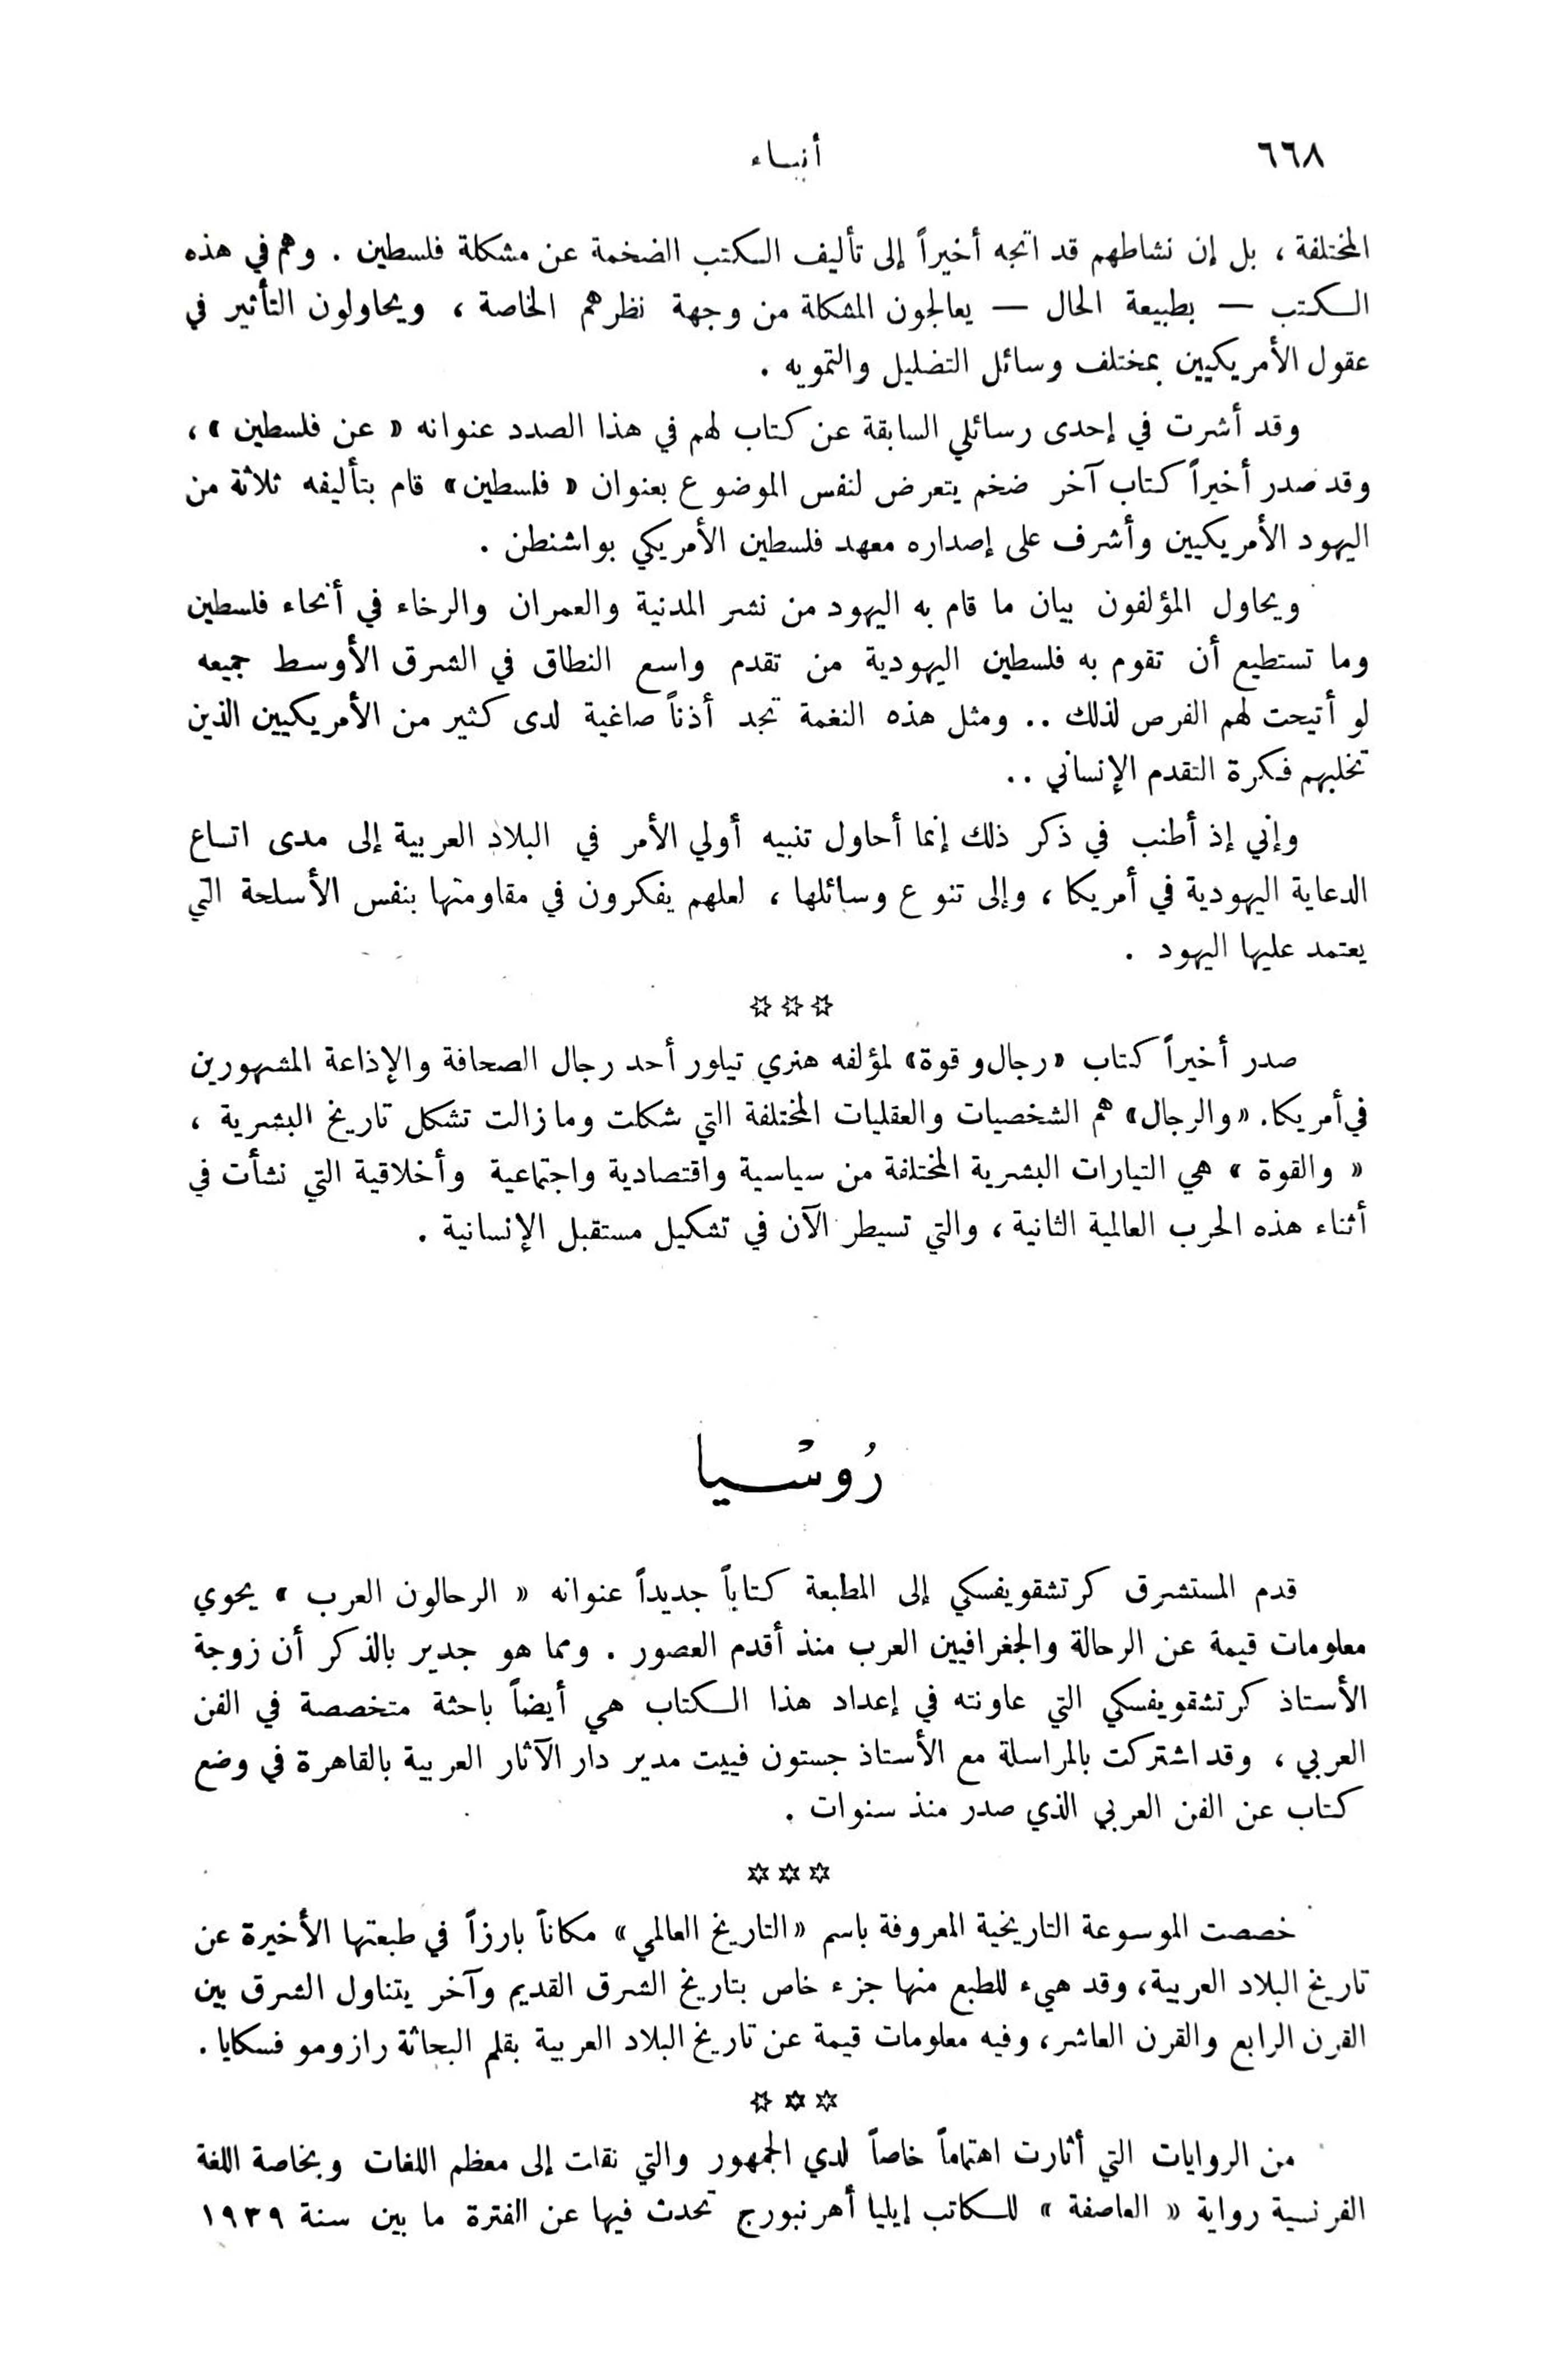 ٦٦٨
أنباء
المختلفة ، بل إن نشاطهم قد اتجه أخيراً إلى تأليف الكتب الضخمة عن مشكلة فلسطين . وهم في هذه
الكتب — بطبيعة الحال — يعالجون المشكلة من وجهة نظرهم الخاصة ، ويحاولون التأثير في
عقول الأمريكيين بمختلف وسائل التضليل والتمويه .
وقد أشرت في إحدى رسائلي السابقة عن كتاب لهم في هذا الصدد عنوانه « عن فلسطين » ،
وقد صدر أخيراً كتاب آخر ضخم يتعرض لنفس الموضوع بعنوان « فلسطين » قام بتأليفه ثلاثة من
اليهود الأمريكيين وأشرف على إصداره معهد فلسطين الأمريكي بواشنطن .
ويحاول المؤلفون بيان ما قام به اليهود من نشر المدنية والعمران والرخاء في أنحاء فلسطين
وما تستطيع أن تقوم به فلسطين اليهودية من تقدم واسع النطاق في الشرق الأوسط جميعه
لو أتيحت لهم الفرص لذلك .. ومثل هذه النغمة تجد أذناً صاغية لدى كثير من الأمريكيين الذين
تخلبهم فكرة التقدم الإنساني ..
وإني إذ أطنب في ذكر ذلك إنما أحاول تنبيه أولي الأمر في البلاد العربية إلى مدى اتساع
الدعاية اليهودية في أمريكا ، وإلى تنوع وسائلها ، لعلهم يفكرون في مقاومتها بنفس الأسلحة التي
يعتمد عليها اليهود .
☆☆☆
صدر أخيراً كتاب «رجال و قوة» لمؤلفه هنري تيلور أحد رجال الصحافة والإذاعة المشهورين
في أمريكا. «والرجال» هم الشخصيات والعقليات المختلفة التي شكلت وما زالت تشكل تاريخ البشرية ،
« والقوة » هي التيارات البشرية المختلفة من سياسية واقتصادية واجتماعية وأخلاقية التي نشأت في
أثناء هذه الحرب العالمية الثانية ، والتي تسيطر الآن في تشكيل مستقبل الإنسانية .
رُوسْيا
قدم المستشرق كرتشقويفسكي إلى المطبعة كتاباً جديداً عنوانه « الرحالون العرب » يحوي
معلومات قيمة عن الرحالة والجغرافيين العرب منذ أقدم العصور . ومما هو جدير بالذكر أن زوجة
الأستاذ كرتشقويفسكي التي عاونته في إعداد هذا الكتاب هي أيضاً باحثة متخصصة في الفن
العربي ، وقد اشتركت بالمراسلة مع الأستاذ جستون فييت مدير دار الآثار العربية بالقاهرة في وضع
كتاب عن الفن العربي الذي صدر منذ سنوات .
☆☆☆
خصصت الموسوعة التاريخية المعروفة باسم «التاريخ العالمي» مكاناً بارزاً في طبعتها الأخيرة عن
تاريخ البلاد العربية، وقد هيء للطبع منها جزء خاص بتاريخ الشرق القديم وآخر يتناول الشرق بين
القرن الرابع والقرن العاشر، وفيه معلومات قيمة عن تاريخ البلاد العربية بقلم البحاثة رازومو فسكايا .
☆☆☆
من الروايات التي أثارت اهتماماً خاصاً لدي الجمهور والتي نقلت إلى معظم اللغات وبخاصة اللغة
الفرنسية رواية « العاصفة » للكاتب إيليا أهرنبورج تحدث فيها عن الفترة ما بين سنة ١٩٣٩